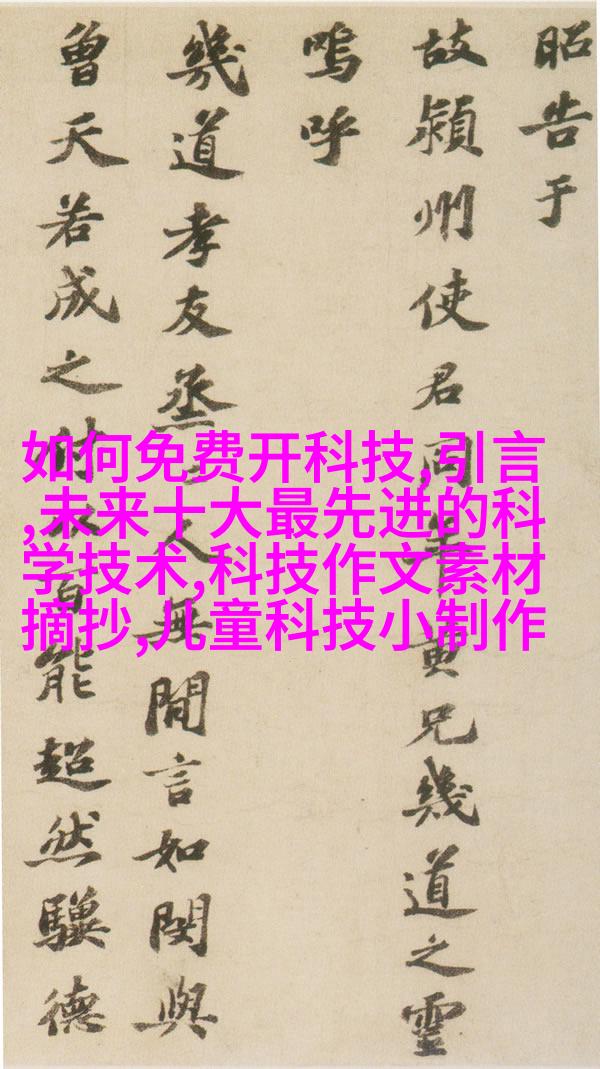 昭告于
故潁州使君同年黄兄幾道之靈
嗚呼
幾道孝友烝人無閒言如閔與
曾天若成之付以百能超然驥德
如何免费开科技,引言
,未来十大最先进的科
学技术,科技作文素材
摘抄,儿童科技小制作